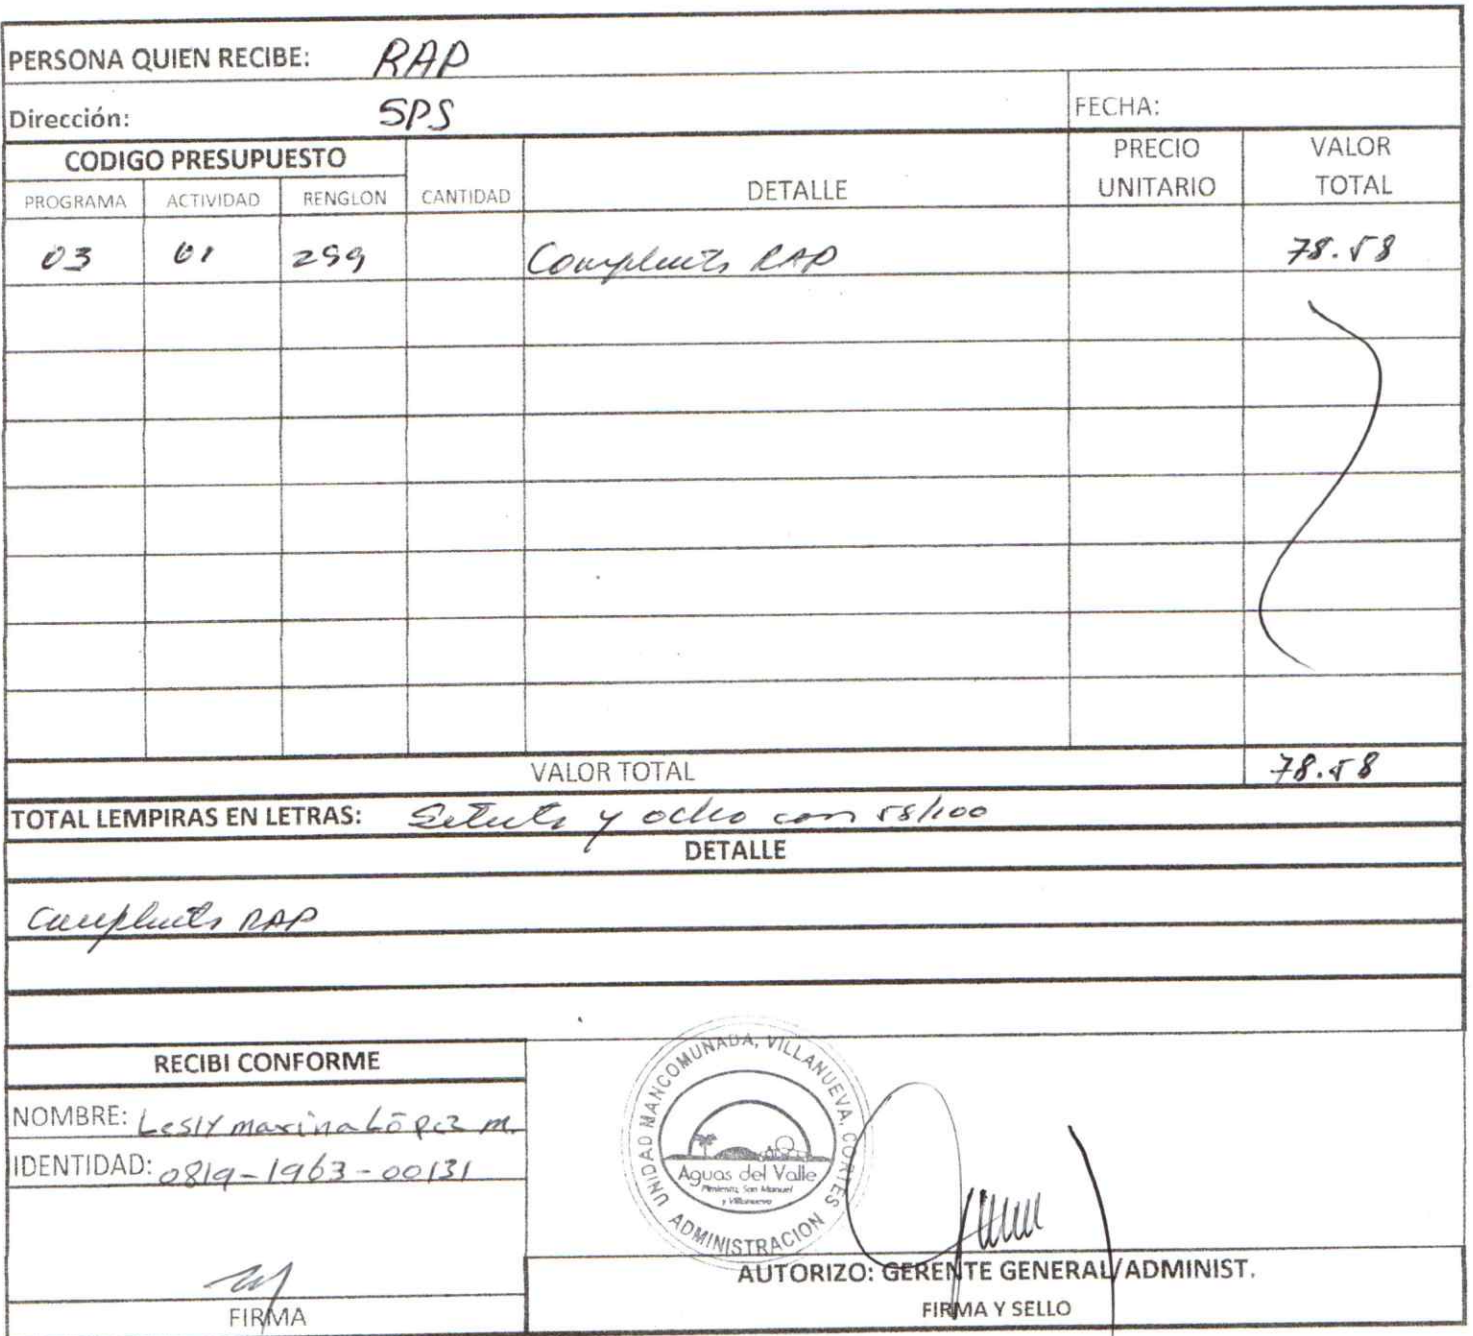 PERSONA QUIEN RECIBE: RAP
Dirección: SPS FECHA:
CODIGO PRESUPUESTO
PROGRAMA ACTIVIDAD RENGLON CANTIDAD DETALLE PRECIO UNITARIO VALOR TOTAL
03 01 299 RAP 78.58
VALOR TOTAL 78.58
TOTAL LEMPIRAS EN LETRAS: y ocho con 58/100
DETALLE
RAP
RECIBI CONFORME
NOMBRE: Lesly marina López m.
IDENTIDAD: 0819-1963-00131
FIRMA
UNIDAD MANCOMUNADA, VILLANUEVA, CORTES
Aguas del Valle
Pimienta, San Manuel
y Villanueva
ADMINISTRACION
AUTORIZO: GERENTE GENERAL/ADMINIST.
FIRMA Y SELLO